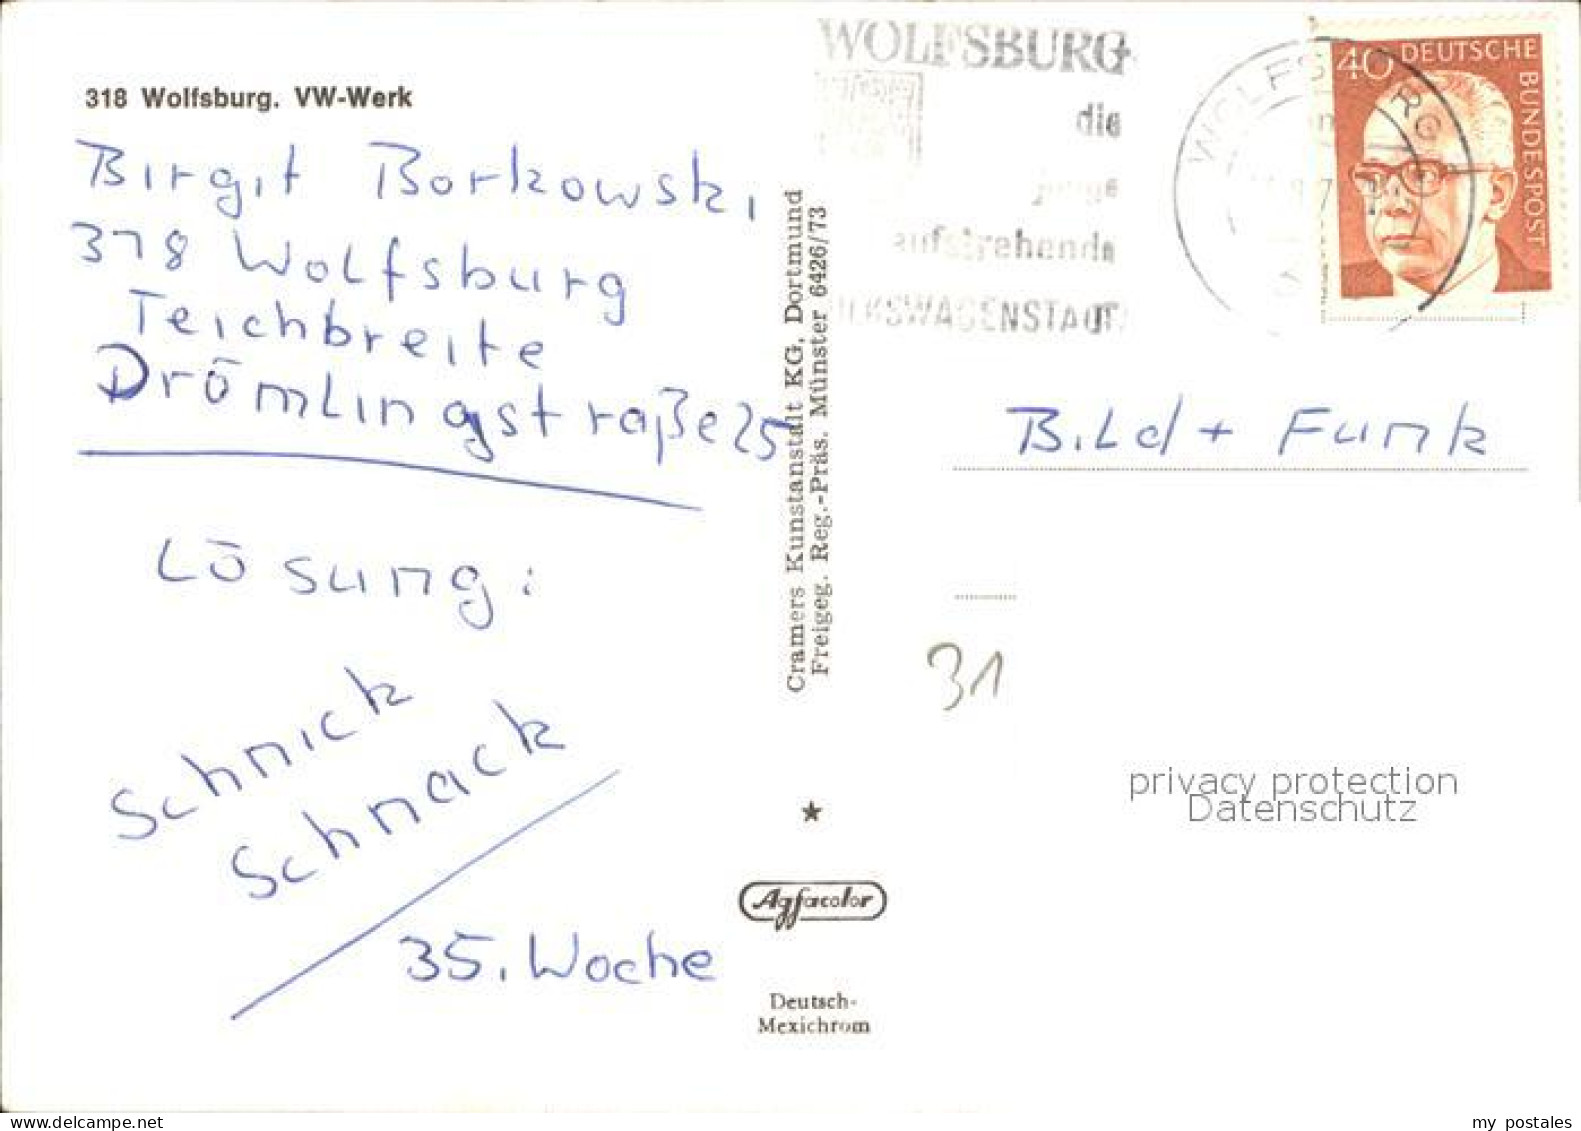 318 Wolfsburg. VW-Werk
Birgit Borkowski
318 Wolfsburg
Teichbreite
Drömlingstraße 25
Lösung:
Schnick
Schnack
35. Woche
Cramers Kunstanstalt KG, Dortmund
Freigeg. Reg.-Präs. Münster 6426/73
★
Agfacolor
Deutsch-
Mexichrom
WOLFSBURG
die
junge
aufstrebende
WOLFSBURG
40 DEUTSCHE
BUNDESPOST
Bild + Funk
31
privacy protection
Datenschutz
my postales